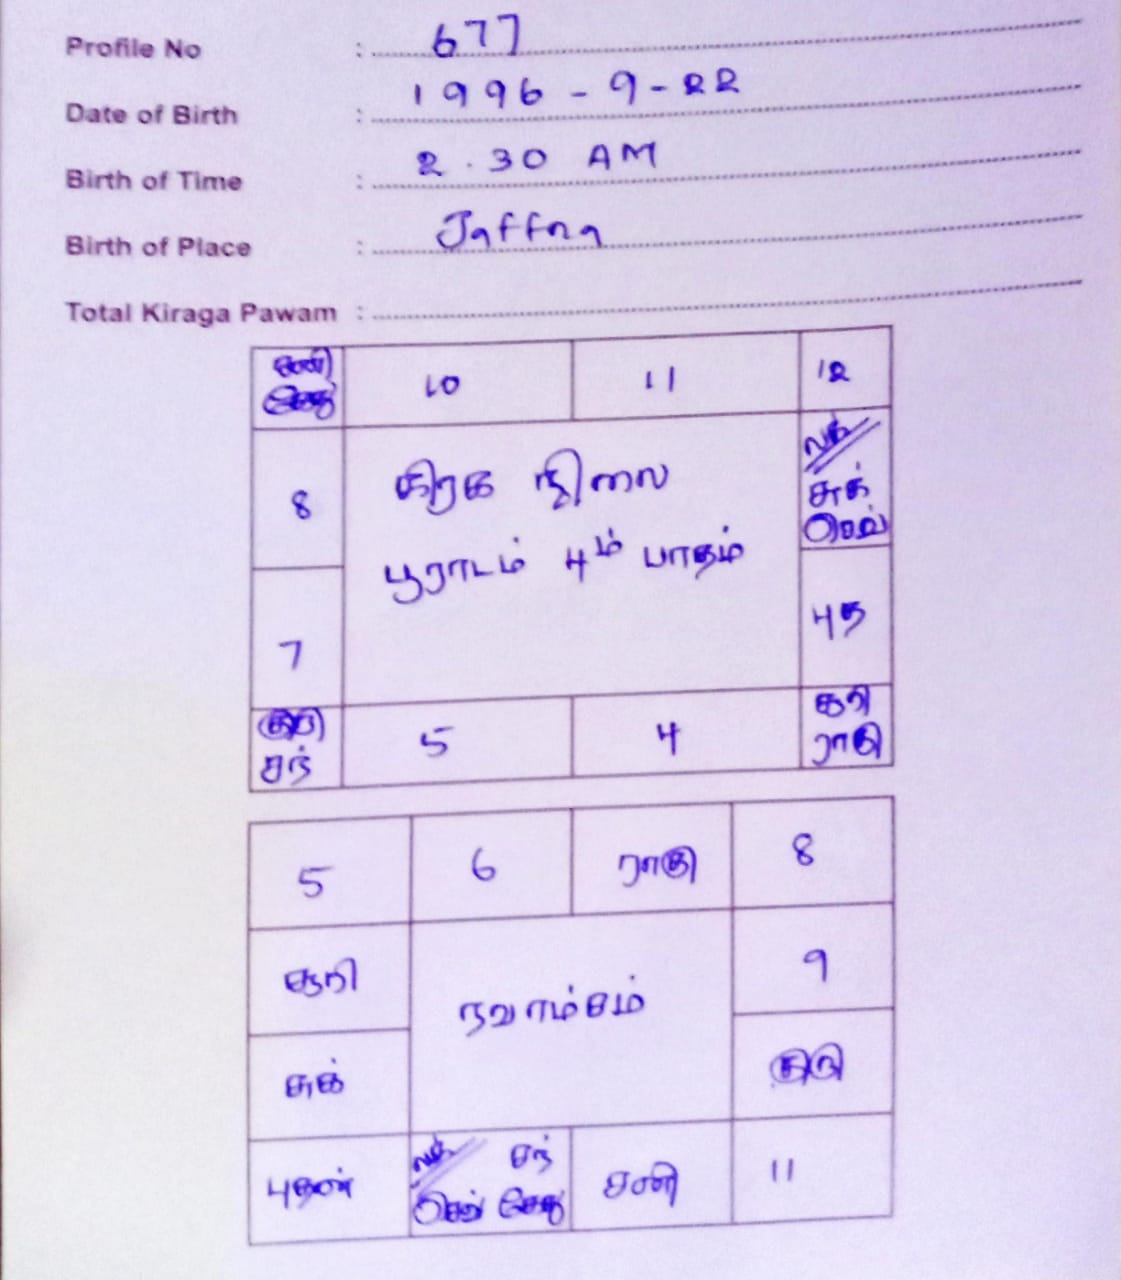 Profile No : 677
Date of Birth : 1996 - 9 - 22
Birth of Time : 2.30 AM
Birth of Place : Jaffna
Total Kiraga Pawam :
சனி 10 11 12
கேது
லக்
8 கிரக நிலை சுக்
செவ்
பூராடம் 4ம் பாதம்
7 புத
குரு 5 4 சூரி
சந் ராகு
5 6 ராகு 8
சூரி நவாம்சம் 9
சுக் குரு
லக் சந்
புதன் செவ் கேது சனி 11